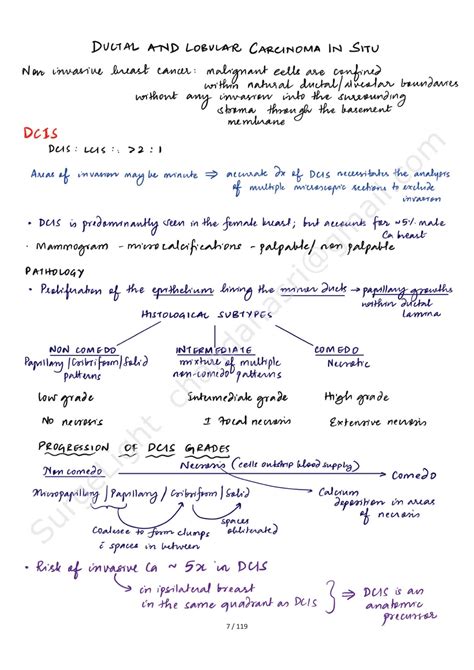 DUCTAL AND LOBULAR CARCINOMA IN SITU
Non invasive breast cancer: malignant cells are confined
within natural ductal/alveolar boundaries
without any invasion into the surrounding
stroma through the basement
membrane
DCIS
DCIS : LCIS :. >2 : 1
Areas of invasion may be minute ⇒ accurate dx of DCIS necessitates the analysis
of multiple microscopic sections to exclude
invasion
• DCIS is predominantly seen in the female breast; but accounts for ~5% male
Ca breast
• Mammogram - microcalcifications - palpable/ non palpable
PATHOLOGY
• Proliferation of the epithelium lining the minor ducts → papillary growths
within ductal
lamma
HISTOLOGICAL SUBTYPES
NON COMEDO INTERMEDIATE COMEDO
Papillary/Cribriform/Solid mixture of multiple Necrotic
patterns non-comedo patterns
Low grade Intermediate grade High grade
No necrosis I focal necrosis Extensive necrosis
PROGRESSION OF DCIS GRADES
Non comedo Necrosis (cells outstrip blood supply) → Comedo
Micropapillary / Papillary / Cribriform / Solid Calcium
deposition in areas
of necrosis
Coalesce to form clumps spaces
c̄ spaces in between obliterated
• Risk of invasive Ca ~ 5x in DCIS
↳ in ipsilateral breast ⇒ DCIS is an
in the same quadrant as DCIS anatomic
precursor
7 / 119
SurgeLight chandanasri@gmail.com